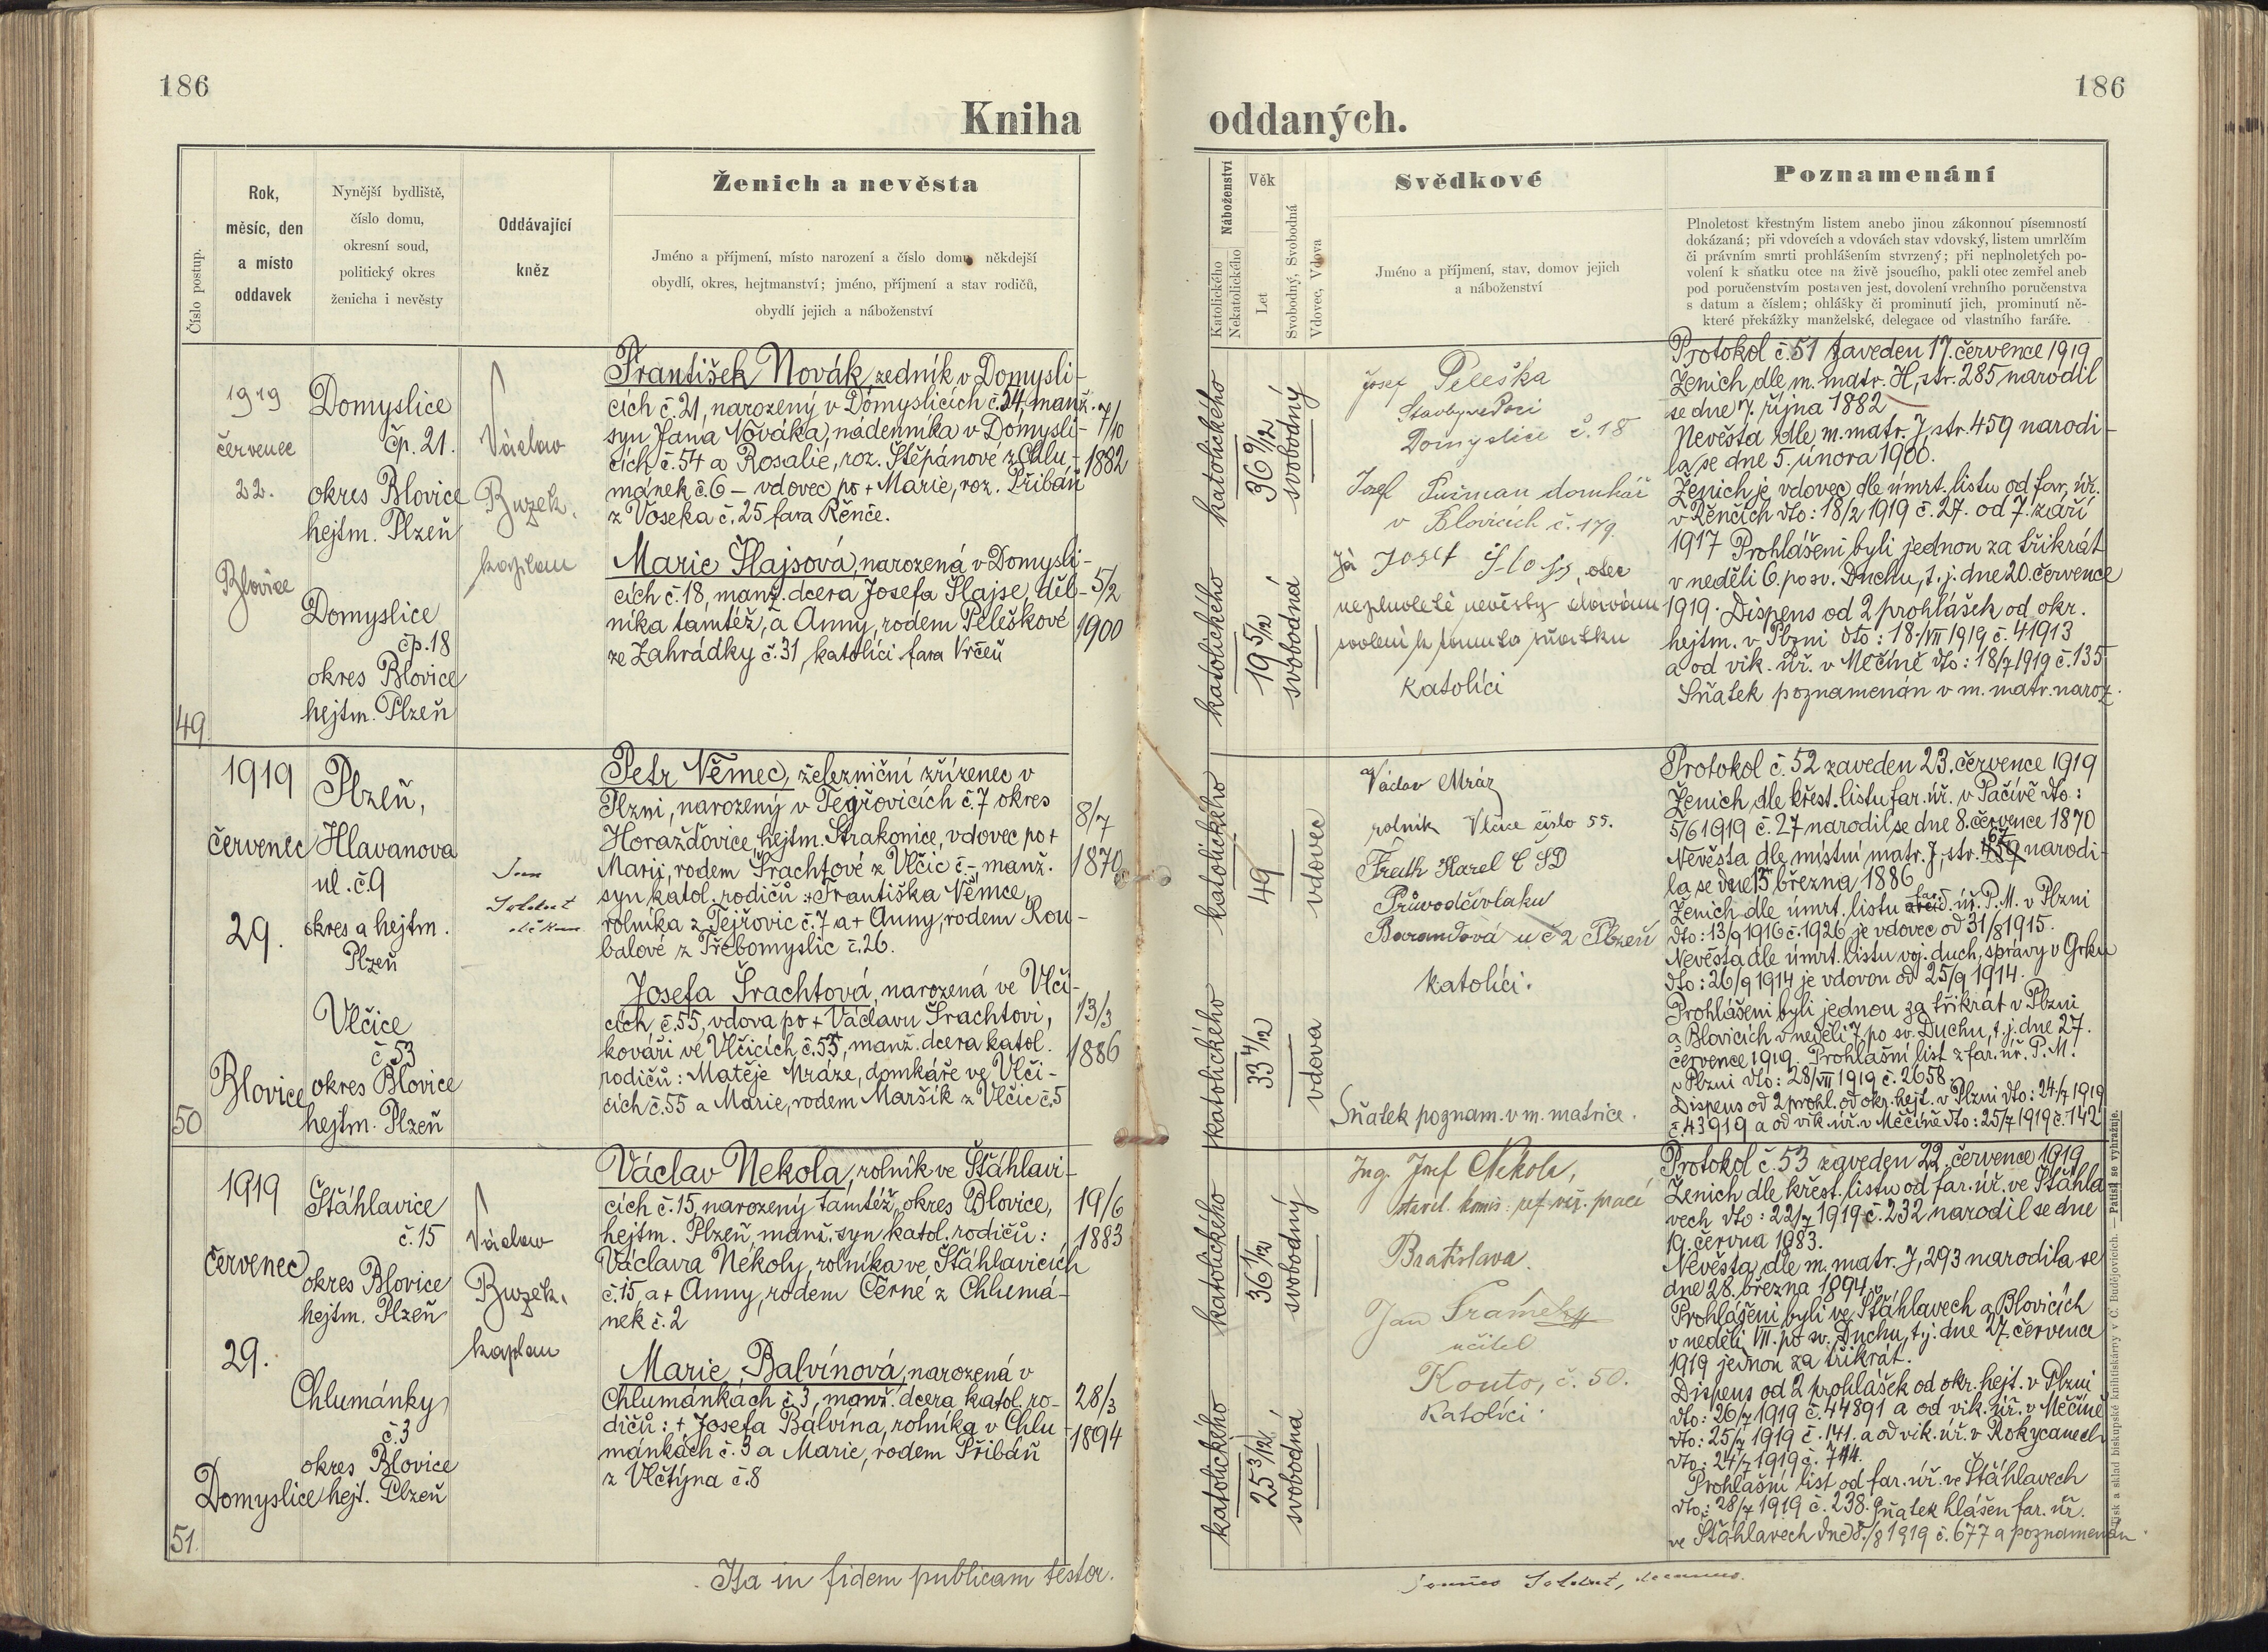 186
Kniha
Číslo postup.
Rok,
měsíc, den
a místo
oddavek
Nynější bydliště,
číslo domu,
okresní soud,
politický okres
ženicha i nevěsty
Oddávající
kněz
Ženich a nevěsta
Jméno a příjmení, místo narození a číslo domu, někdejší
obydlí, okres, hejtmanství; jméno, příjmení a stav rodičů,
obydlí jejich a náboženství
49.
1919
červenec
22.
Blovice
Domyslice
čp. 21.
okres Blovice
hejtm. Plzeň
Domyslice
čp. 18
okres Blovice
hejtm. Plzeň
Václav
Buzek,
kaplan
František Novák, zedník v Domysli-
cích č. 21, narozený v Domyslicích č. 24, manž.
syn Jana Nováka, nádenníka v Domysli-
cích č. 54 a Rosalie, roz. Štěpánové z Chlu-
mánek č. 6 – vdovec po + Marie, roz. Přibáň
z Voseka č. 25 fara Řenče.
7/10
1882
Marie Šlajsová, narozená v Domysli-
cích č. 18, manž. dcera Josefa Šlajse, děl-
níka tamtéž, a Anny, rodem Peleškové
ze Zahrádky č. 31, katolíci fara Vrčeň
5/2
1900
50
1919
červenec
29.
Blovice
Plzeň,
Hlavanova
ul. č. 9
okres a hejtm.
Plzeň
Vlčice
č. 53
okres Blovice
hejtm. Plzeň
Petr Němec, železniční zřízenec v
Plzni, narozený v Tejřovicích č. 7 okres
Horažďovice, hejtm. Strakonice, vdovec po +
Marii, rodem Šrachtové z Vlčic č. -, manž.
syn katol. rodičů: + Františka Němce,
rolníka z Tejřovic č. 7 a + Anny, rodem Kou-
balové z Třebomyslic č. 26.
8/7
1870
Josefa Šrachtová, narozená ve Vlči-
cích č. 55, vdova po + Václavu Šrachtovi,
kováři ve Vlčicích č. 53, manž. dcera katol.
rodičů: Matěje Mráze, domkáře ve Vlči-
cích č. 55 a Marie, rodem Maršík z Vlčic č. 5
13/3
1886
51.
1919
červenec
29.
Domyslice
Šťáhlavice
č. 15
okres Blovice
hejtm. Plzeň
Chlumánky
č. 3
okres Blovice
hejt. Plzeň
Václav
Buzek,
kaplan
Václav Nekola, rolník ve Šťáhlavi-
cích č. 15, narozený tamtéž, okres Blovice,
hejtm. Plzeň, manž. syn katol. rodičů:
Václava Nekoly, rolníka ve Šťáhlavicích
č. 15, a + Anny, rodem Černé z Chlumá-
nek č. 2
19/6
1883
Marie Balvínová, narozená v
Chlumánkách č. 3, manž. dcera katol. ro-
dičů: + Josefa Balvína, rolníka v Chlu-
mánkách č. 3 a Marie, rodem Přibáň
z Vlčtýna č. 8
28/3
1894
Ita in fidem publicam testor.
186
oddaných.
Náboženství
Katolického
Nekatolického
Věk
Let
Svobodný, Svobodná
Vdovec, Vdova
Svědkové
Jméno a příjmení, stav, domov jejich
a náboženství
Poznamenání
Plnoletost křestným listem anebo jinou zákonnou písemností
dokázaná; při vdovcích a vdovách stav vdovský, listem umrlčím
či právním smrti prohlášením stvrzený; při neplnoletých po-
volení k sňatku otce na živě jsoucího, pakli otec zemřel aneb
pod poručenstvím postaven jest, dovolení vrchního poručenstva
s datum a číslem; ohlášky či prominutí jich, prominutí ně-
které překážky manželské, delegace od vlastního faráře.
katolického
36 9/12
svobodný
katolického
19 5/12
svobodná
Josef Peleška
Domyslice č. 18
Josef Pušman domkář
v Blovicích č. 179.
Já Josef Šlajs, otec
neplnoleté nevěsty dávám
svolení k tomuto sňatku
katolíci
Protokol č. 51 zaveden 17. července 1919
Ženich dle m. matr. H, str. 285 narodil
se dne 7. října 1882
Nevěsta dle m. matr. J, str. 459 narodi-
la se dne 5. února 1900.
Ženich je vdovec dle úmrt. listu od far. úř.
v Řenčích dto: 18/2 1919 č. 27. od 7. září
1917 Prohlášeni byli jednou za třikrát
v neděli 6. po sv. Duchu, t. j. dne 20. července
1919. Dispens od 2 prohlášek od okr.
hejtm. v Plzni dto: 18./VII 1919 č. 41913
a od vik. úř. v Měčíně dto: 18/7 1919 č. 135
Sňatek poznamenán v m. matr. naroz.
katolického
49
vdovec
katolického
33 4/12
vdova
Václav Mráz
rolník Vlčice číslo 55.
Karel Č S D
Průvodčí vlaku
Barandová u č 2 Plzeň
katolíci.
Sňatek poznam. v m. matrice.
Protokol č. 52 zaveden 23. července 1919
Ženich dle křest. listu far. úř. v Pačívě dto:
5/6 1919 č. 27 narodil se dne 8. července 1870
Nevěsta dle místní matr. J, str. 67 narodi-
la se dne 13 března 1886
Ženich dle úmrt. listu far. úř. P. M. v Plzni
dto: 13/9 1916 č. 1926 je vdovec od 31/8 1915.
Nevěsta dle úmrt. listu voj. duch. správy v Grku
dto: 26/9 1914 je vdovou od 25/9 1914.
Prohlášeni byli jednou za třikrát v Plzni
a Blovicích v neděli 7. po sv. Duchu, t. j. dne 27.
července 1919. Prohlašní list z far. úř. P. M.
v Plzni dto: 28/VII 1919 č. 2658.
Dispens od 2 prohl. od okr. hejt. v Plzni dto: 24/7 1919
č. 43919 a od vik. úř. v Měčíně dto: 25/7 1919 č. 142
katolického
36 1/12
svobodný
katolického
25 3/12
svobodná
Ing. Josef Nekola,
Bratislava.
Jan Šrámek
učitel
Kouto, č. 50.
Katolíci.
Protokol č. 53 zaveden 22. července 1919
Ženich dle křest. listu od far. úř. ve Šťáhla
vech dto: 22/7 1919 č. 232 narodil se dne
19. června 1983.
Nevěsta dle m. matr. J, 293 narodila se
dne 28. března 1894.
Prohlášeni byli ve Šťáhlavech a Blovicích
v neděli VII. po sv. Duchu, t. j. dne 27. července
1919 jednou za třikrát.
Dispens od 2 prohlášek od okr. hejt. v Plzni
dto: 26/7 1919 č. 44891 a od vik. úř. v Měčíně
dto: 25/7 1919 č. 141. a od vik. úř. v Rokycanech
dto: 24/7 1919 č. 744.
Prohlašní list od far. úř. ve Šťáhlavech
dto: 28/7 1919 č. 238. Sňatek hlášen far. úř.
ve Šťáhlavech dne 8./8 1919 č. 677 a poznamenán.
Tisk a sklad biskupské knihtiskárny v Č. Budějovicích. — Patisk se vyhražuje.